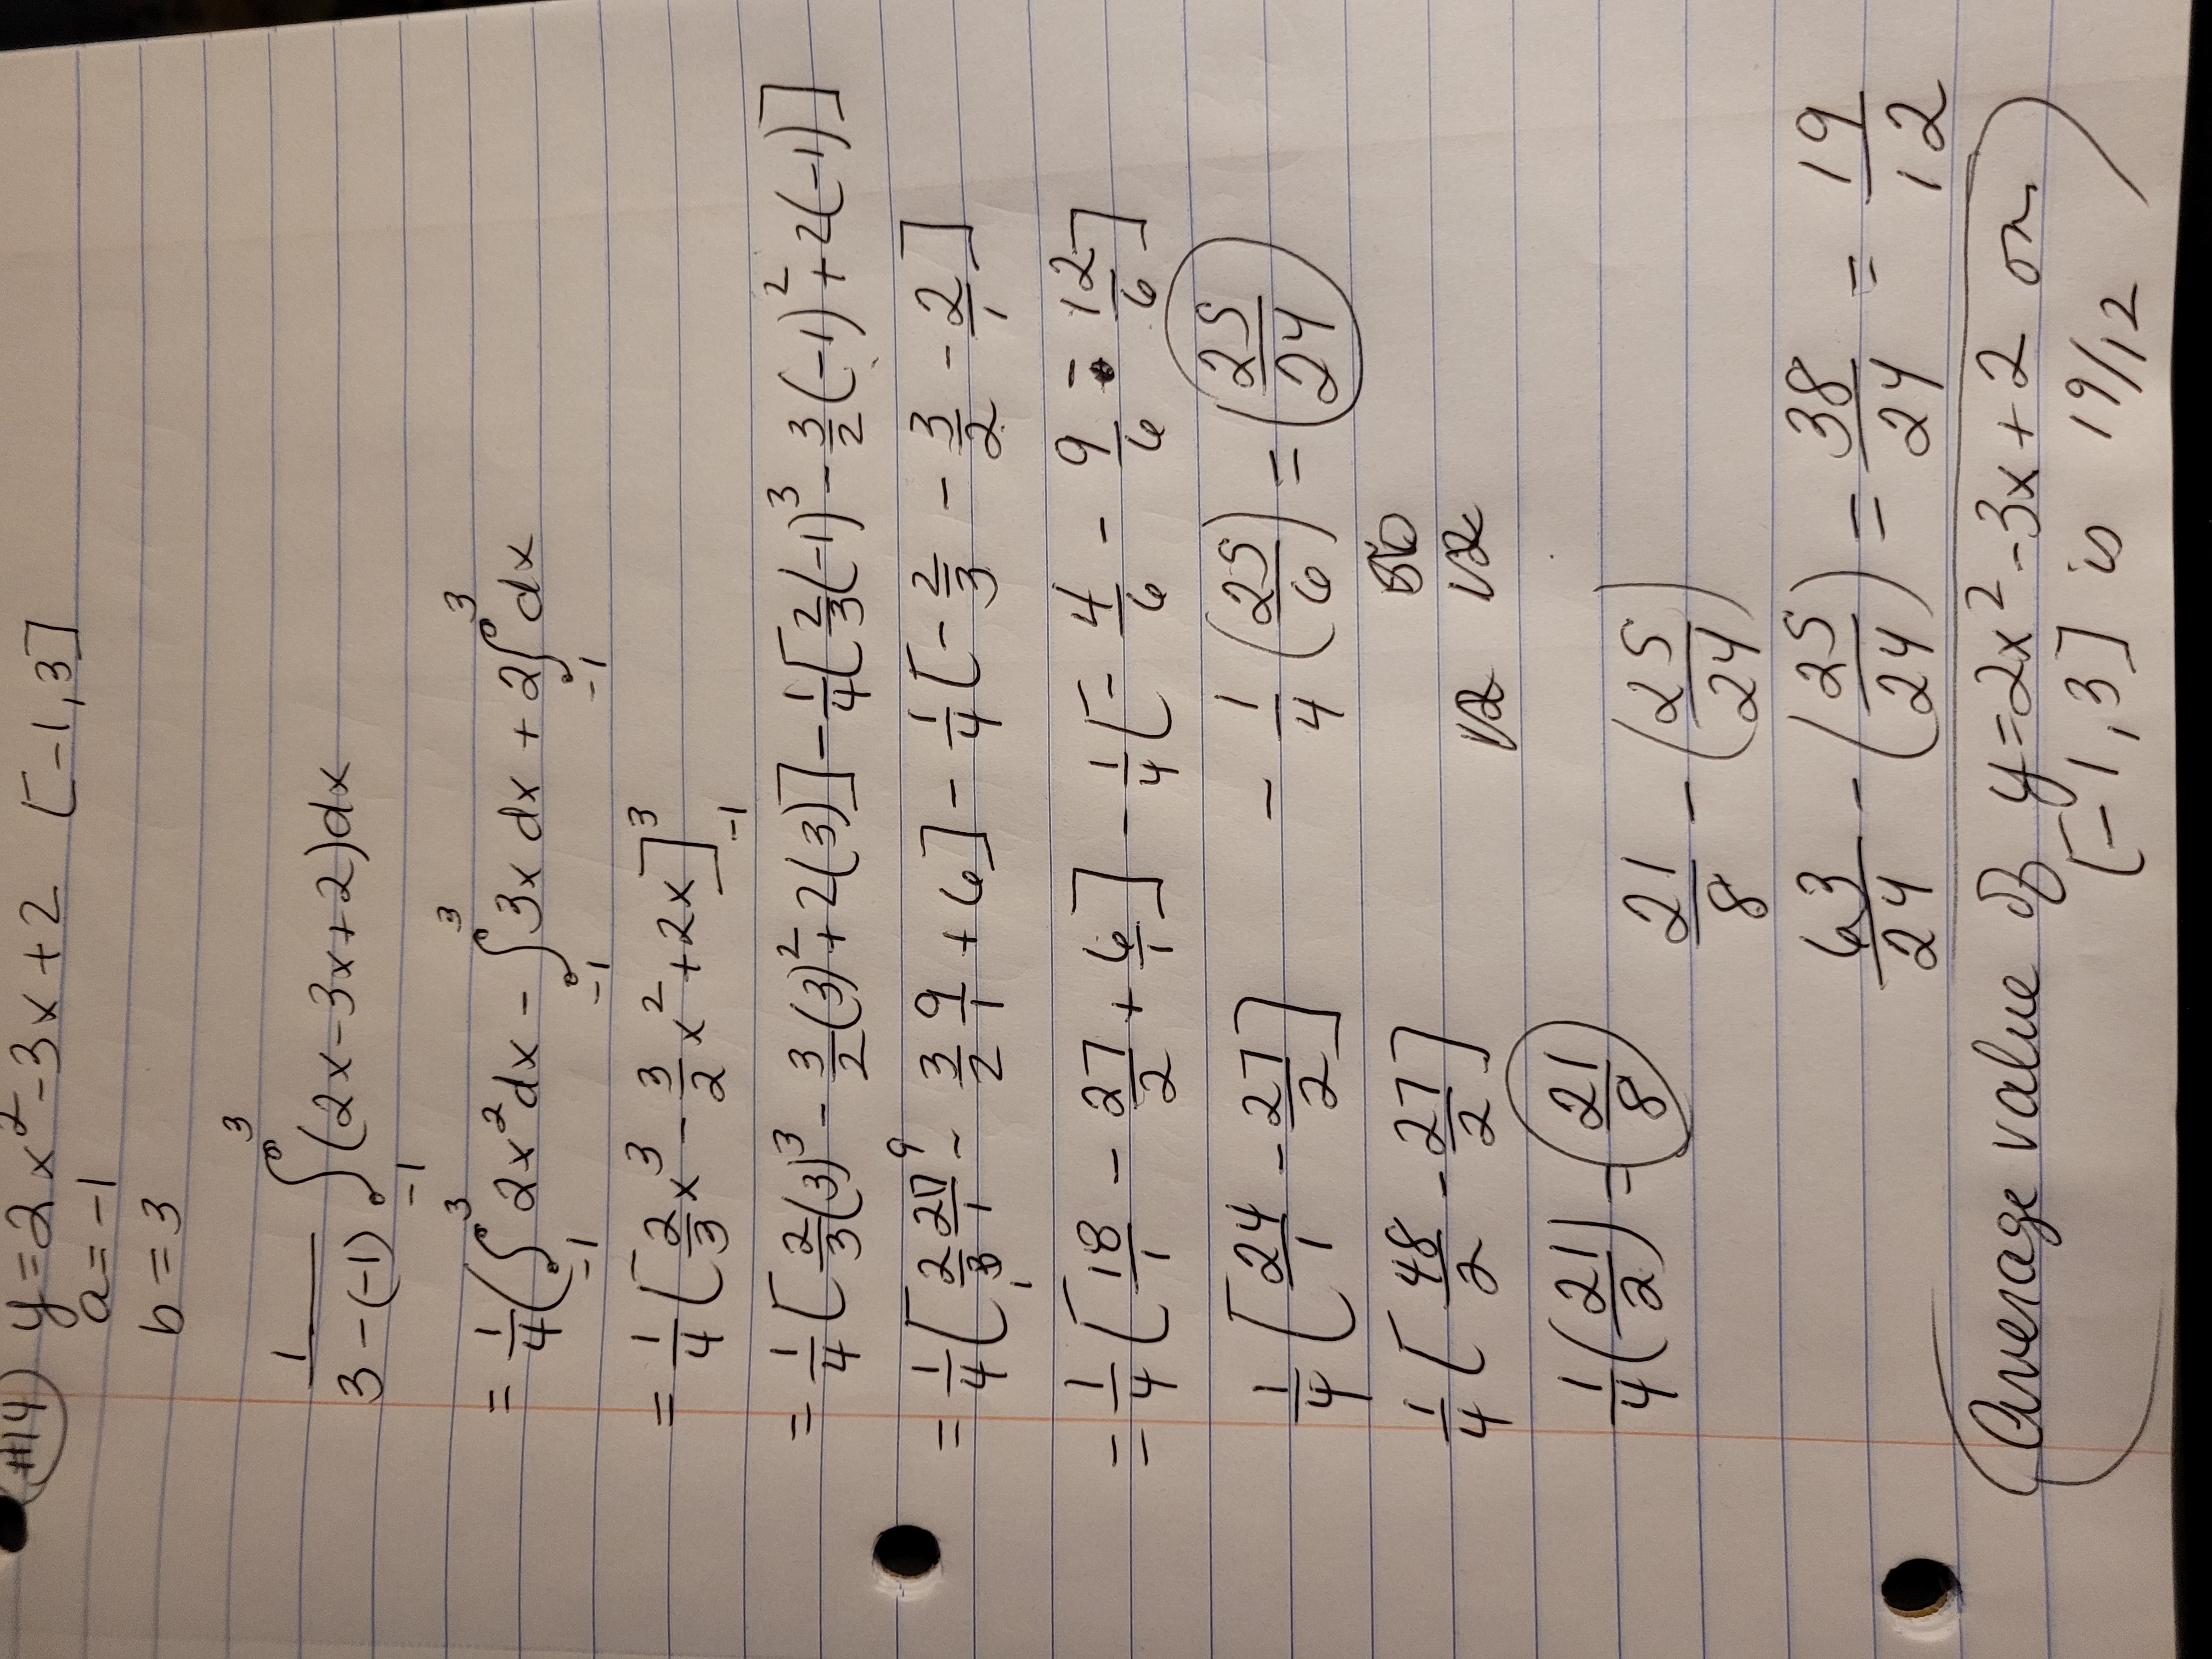 #14) y=2x²-3x+2 [-1,3]
a=-1
b=3
1/(3-(-1)) ∫₋₁³ (2x-3x+2)dx
= 1/4(∫₋₁³ 2x²dx - ∫₋₁³ 3x dx + 2∫₋₁³ dx
= 1/4[2/3x³ - 3/2x² + 2x]₋₁³
= 1/4[2/3(3)³ - 3/2(3)² + 2(3)] - 1/4[2/3(-1)³ - 3/2(-1)² + 2(-1)]
= 1/4[2/3 27/1 9 1 - 3/2 9/1 + 6] - 1/4[-2/3 - 3/2 - 2/1]
= 1/4[18/1 - 27/2 + 6/1] - 1/4[-4/6 - 9/6 - 12/6]
1/4[24/1 - 27/2] - 1/4(25/6) = (25/24)
1/4[48/2 - 27/2]
1/4(21/2) = 21/8
21/8 - (25/24)
63/24 - (25/24) = 38/24 = 19/12
Average value of y=2x²-3x+2 on
[-1,3] is 19/12